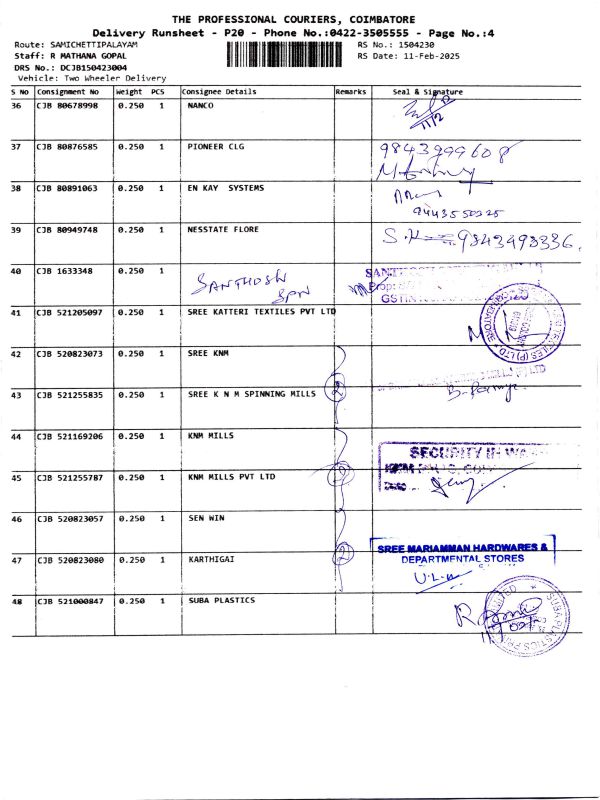 THE PROFESSIONAL COURIERS, COIMBATORE
Delivery Runsheet - P20 - Phone No.:0422-3505555 - Page No.:4
Route: SAMICHETTIPALAYAM RS No.: 1504230
Staff: R MATHANA GOPAL RS Date: 11-Feb-2025
DRS No.: DCJB150423004
Vehicle: Two Wheeler Delivery
S No Consignment No Weight PCS Consignee Details Remarks Seal & Signature
36 CJB 80678998 0.250 1 NANCO
11/2
37 CJB 80876585 0.250 1 PIONEER CLG 9843999608
38 CJB 80891063 0.250 1 EN KAY SYSTEMS
9443550225
39 CJB 80949748 0.250 1 NESSTATE FLORE 9843498336
40 CJB 1633348 0.250 1 SANTHOSH
SPN
41 CJB 521205097 0.250 1 SREE KATTERI TEXTILES PVT LTD
42 CJB 520823073 0.250 1 SREE KNM
43 CJB 521255835 0.250 1 SREE K N M SPINNING MILLS 2
44 CJB 521169206 0.250 1 KNM MILLS
SECURITY IN
45 CJB 521255787 0.250 1 KNM MILLS PVT LTD 2
46 CJB 520823057 0.250 1 SEN WIN
SREE MARIAMMAN HARDWARES &
47 CJB 520823080 0.250 1 KARTHIGAI 2 DEPARTMENTAL STORES
48 CJB 521000847 0.250 1 SUBA PLASTICS
SUBA PLASTICS PRIVATE LIMITED